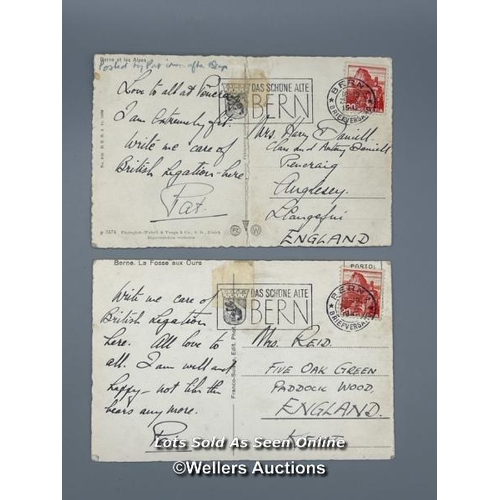 Berne et les Alpes
Posted by Pat when after
Love to all at Pencraig
I am extremely fit.
Write me care of
British Legation-here
Pat.
DAS SCHÖNE ALTE
BERN
BERN
BRIEFVERSAND
Mrs. Harry Daniell
Penraig
Anglesey.
Llangefni
ENGLAND
Berne. La Fosse aux Ours
Write me care of
British Legation
here. All love to
all. I am well and
happy - not like the
bears any more.
DAS SCHÖNE ALTE
BERN
BERN
BRIEFVERSAND
Mrs. REID.
FIVE OAK GREEN
PADDOCK WOOD,
ENGLAND.
Lots Sold As Seen Online
©Wellers Auctions